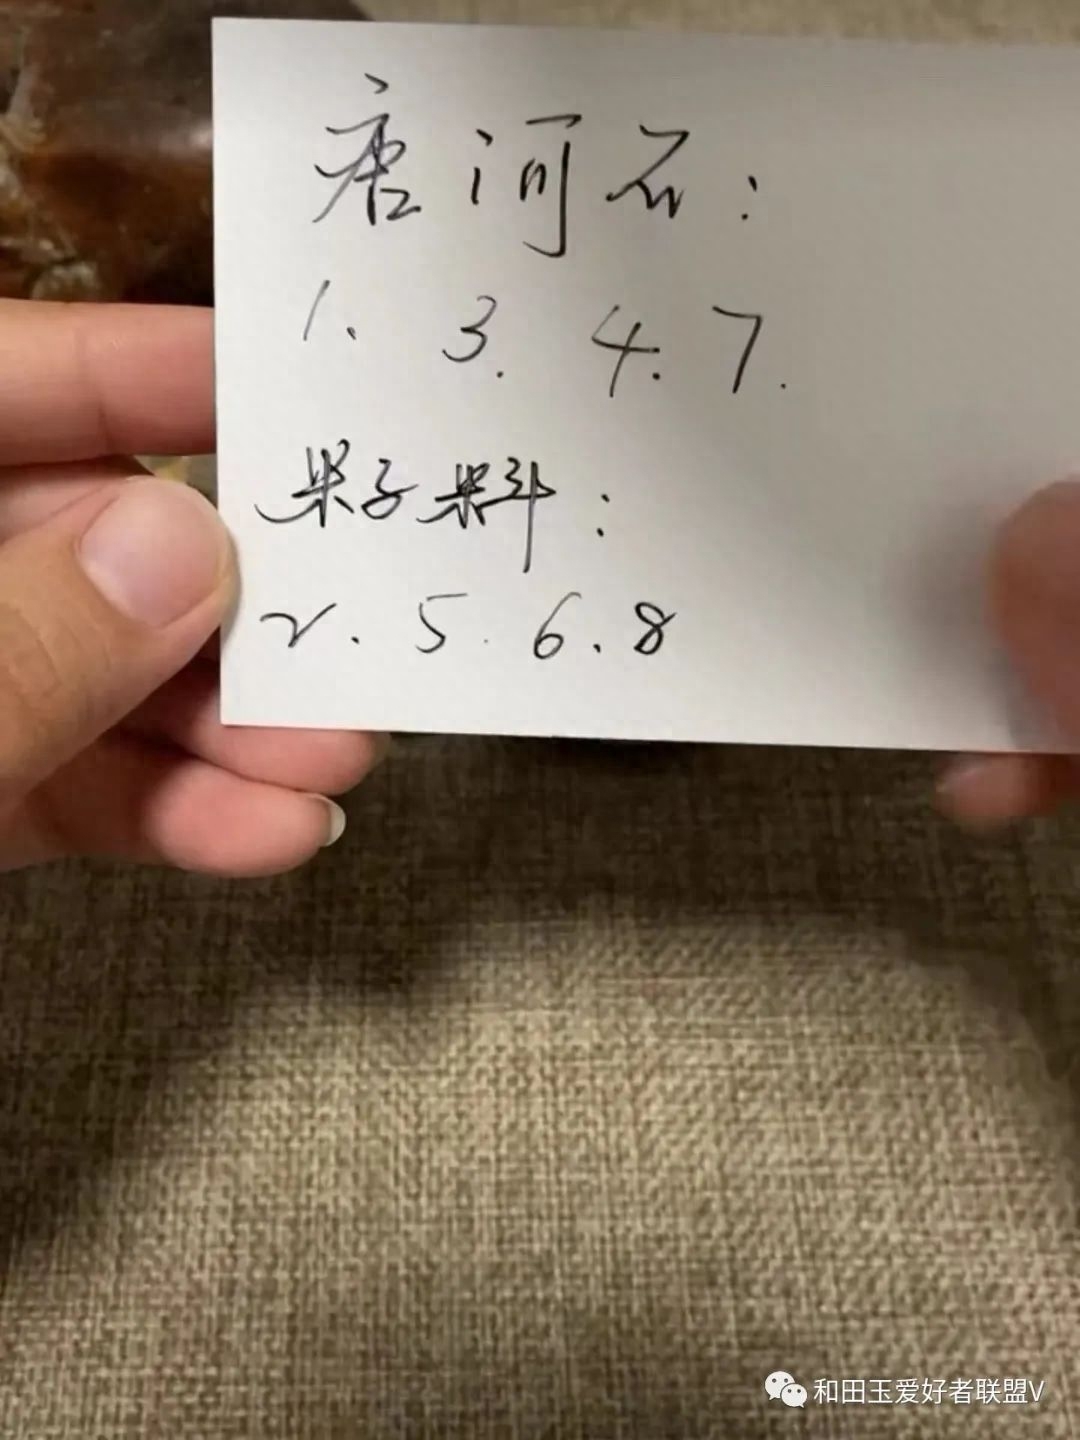 唐河石：
1、3.4.7.
果子料：
2.5.6.8
和田玉爱好者联盟V